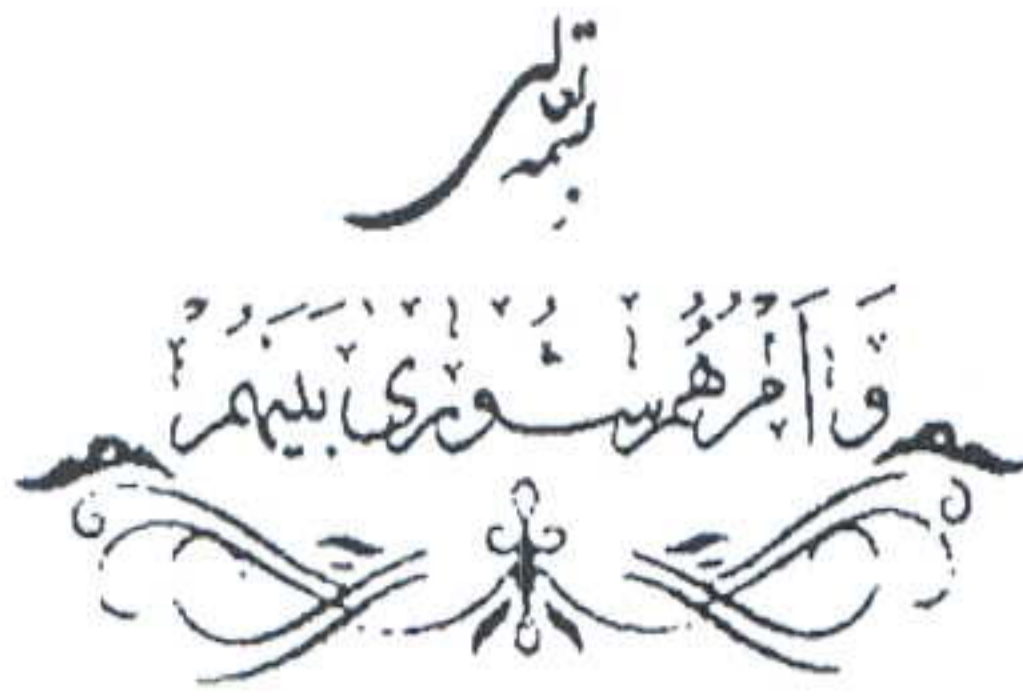 بسمه تعالی
وَأَمْرُهُمْ شُورَى بَيْنَهُمْ